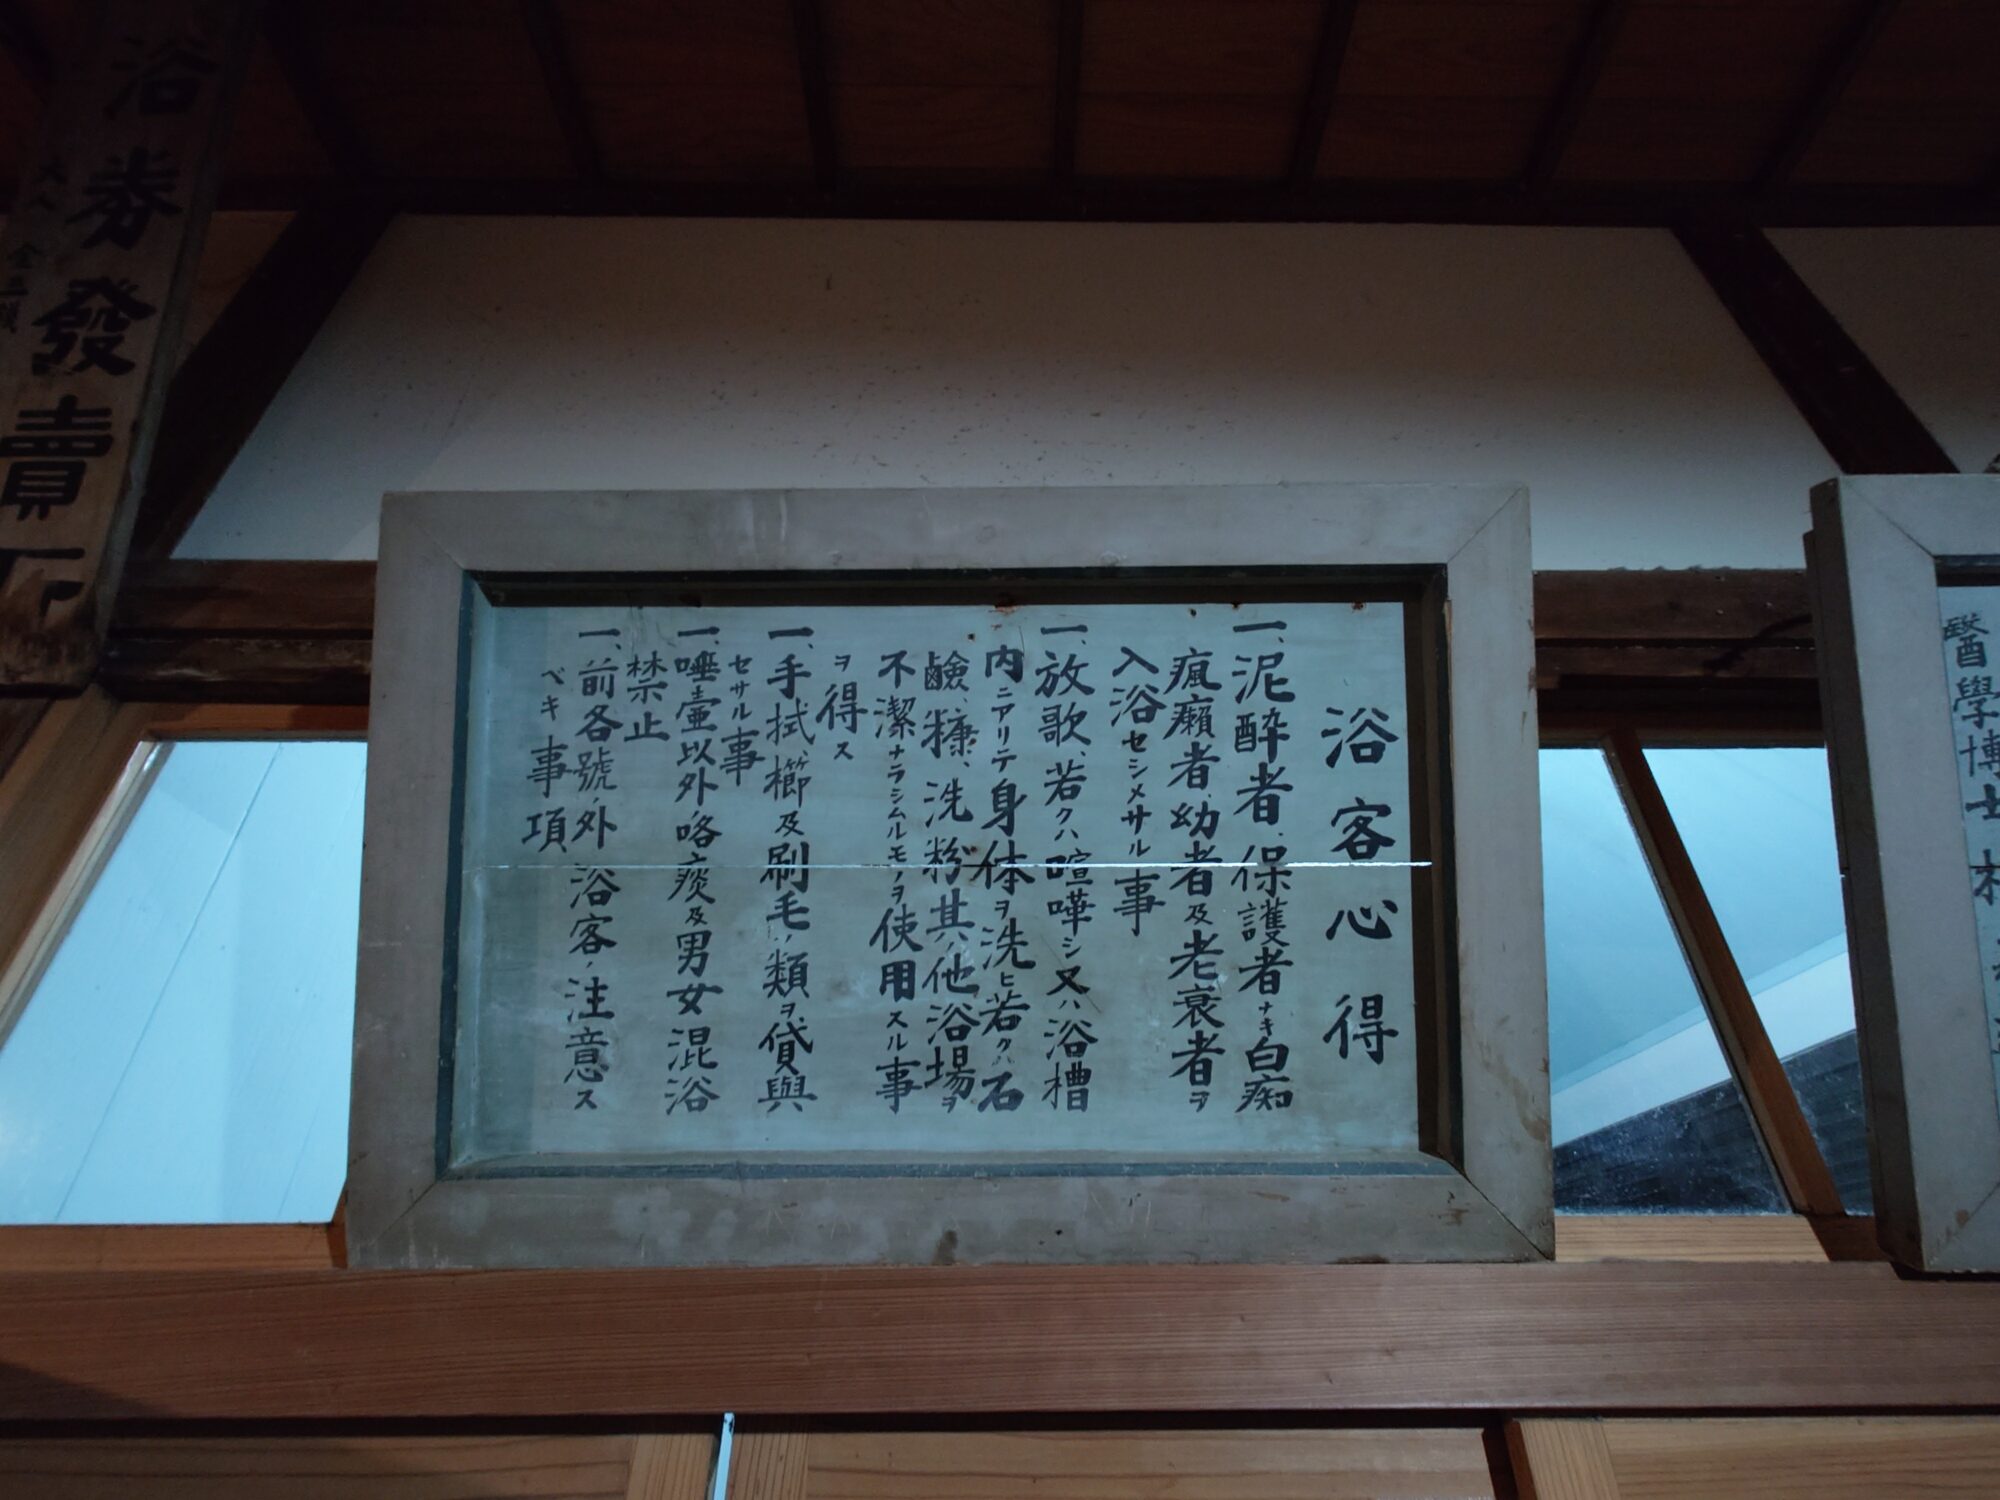 浴客心得
一、泥酔者、保護者ナキ白痴
瘋癲者、幼者及老衰者ヲ
入浴セシメサル事
一、放歌、若クハ喧嘩シ又ハ浴槽
内ニアリテ身体ヲ洗ヒ若クハ石
鹸、糠、洗粉其ノ他浴場ヲ
不潔ナラシムルモノヲ使用スル事
ヲ得ス
一、手拭、櫛及刷毛ノ類ヲ貸與
セサル事
一、唾壷以外咯痰及男女混浴
禁止
一、前各號ノ外浴客ノ注意ス
ベキ事項
浴券發賣所
大人 金
醫學博士